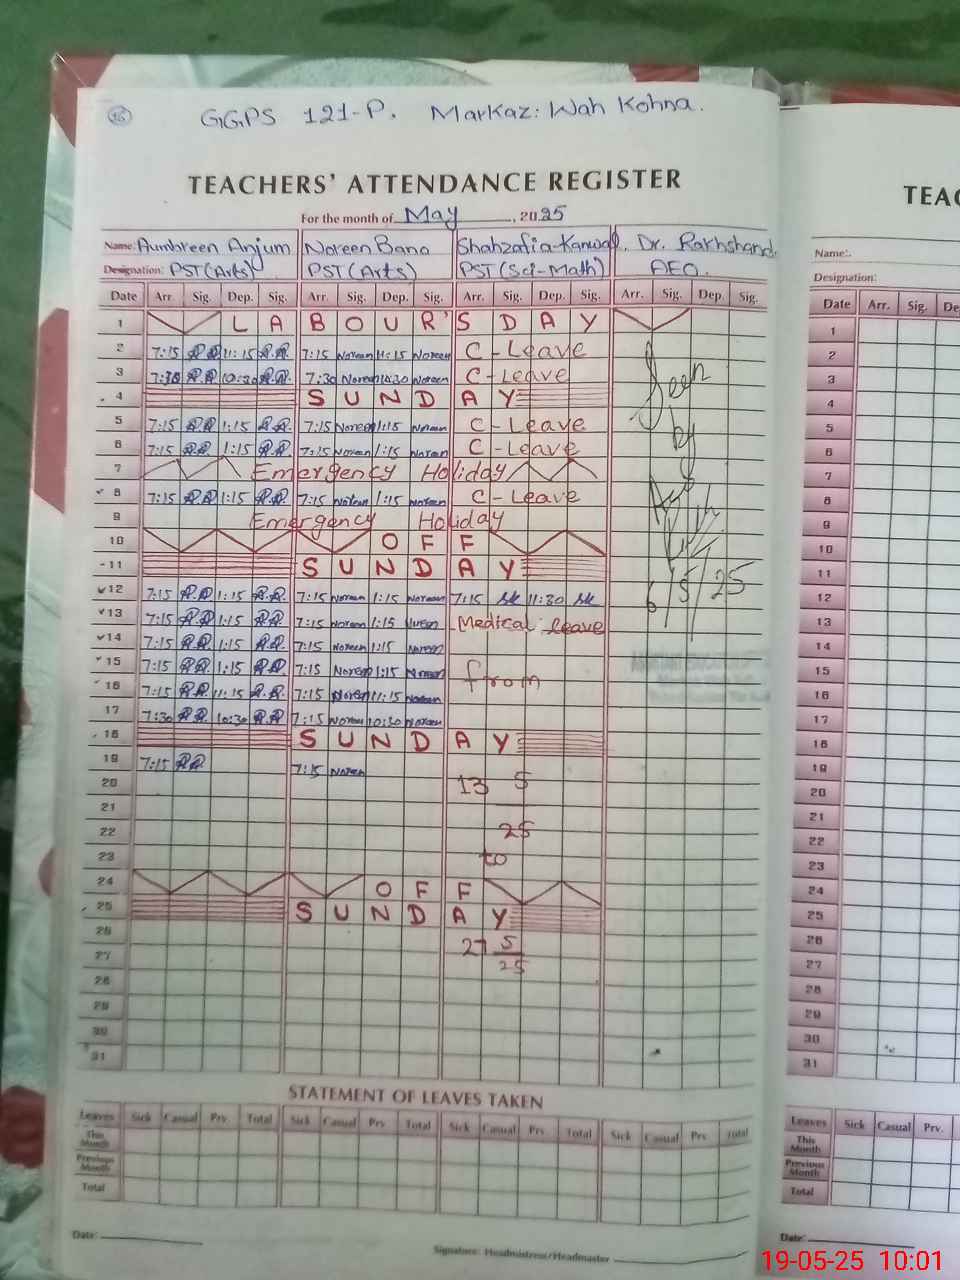 16 GGPS 121-P. Markaz: Wah Kohna.
TEACHERS' ATTENDANCE REGISTER
For the month of May, 2025
Name: Aumbreen Anjum Noreen Bano Shahzafia Kanwal. Dr. Rakhshand
Designation: PST (Arts) PST (Arts) PST (Sci-Math) AEO.
Date Arr. Sig. Dep. Sig. Arr. Sig. Dep. Sig. Arr. Sig. Dep. Sig. Arr. Sig. Dep. Sig.
1 LABOUR'S DAY
2 7:15 11:15 7:15 Noreen 11:15 Noreen C-Leave
3 7:30 10:30 7:30 Noreen 10:30 Noreen C-Leave
4 SUNDAY
5 7:15 1:15 7:15 Noreen 1:15 Noreen C-Leave
6 7:15 1:15 7:15 Noreen 1:15 Noreen C-Leave
7 Emergency Holiday
8 7:15 1:15 7:15 Noreen 1:15 Noreen C-Leave
9 Emergency Holiday
10 OFF
11 SUNDAY
12 7:15 1:15 7:15 Noreen 1:15 Noreen 7:15 SK 11:30 SK
13 7:15 1:15 7:15 Noreen 1:15 Noreen Medical leave
14 7:15 1:15 7:15 Noreen 1:15 Noreen
15 7:15 1:15 7:15 Noreen 1:15 Noreen from
16 7:15 11:15 7:15 Noreen 11:15 Noreen
17 7:30 10:30 7:15 Noreen 10:30 Noreen
18 SUNDAY
19 7:15 7:15 Noreen
20 13 5
21
22 25
23 to
24 OFF
25 SUNDAY
26 27 5
27 25
28
29
30
31
Seen
by
6/5/25
STATEMENT OF LEAVES TAKEN
Leaves Sick Casual Prv. Total Sick Casual Prv. Total Sick Casual Prv. Total Sick Casual Prv. Total
This Month
Previous Month
Total
Date:
Signature: Headmistress/Headmaster
TEAC
Name:
Designation:
Date Arr. Sig. De
1
2
3
4
5
6
7
8
9
10
11
12
13
14
15
16
17
18
19
20
21
22
23
24
25
26
27
28
29
30
31
Leaves Sick Casual Prv.
This Month
Previous Month
Total
Date:
19-05-25 10:01